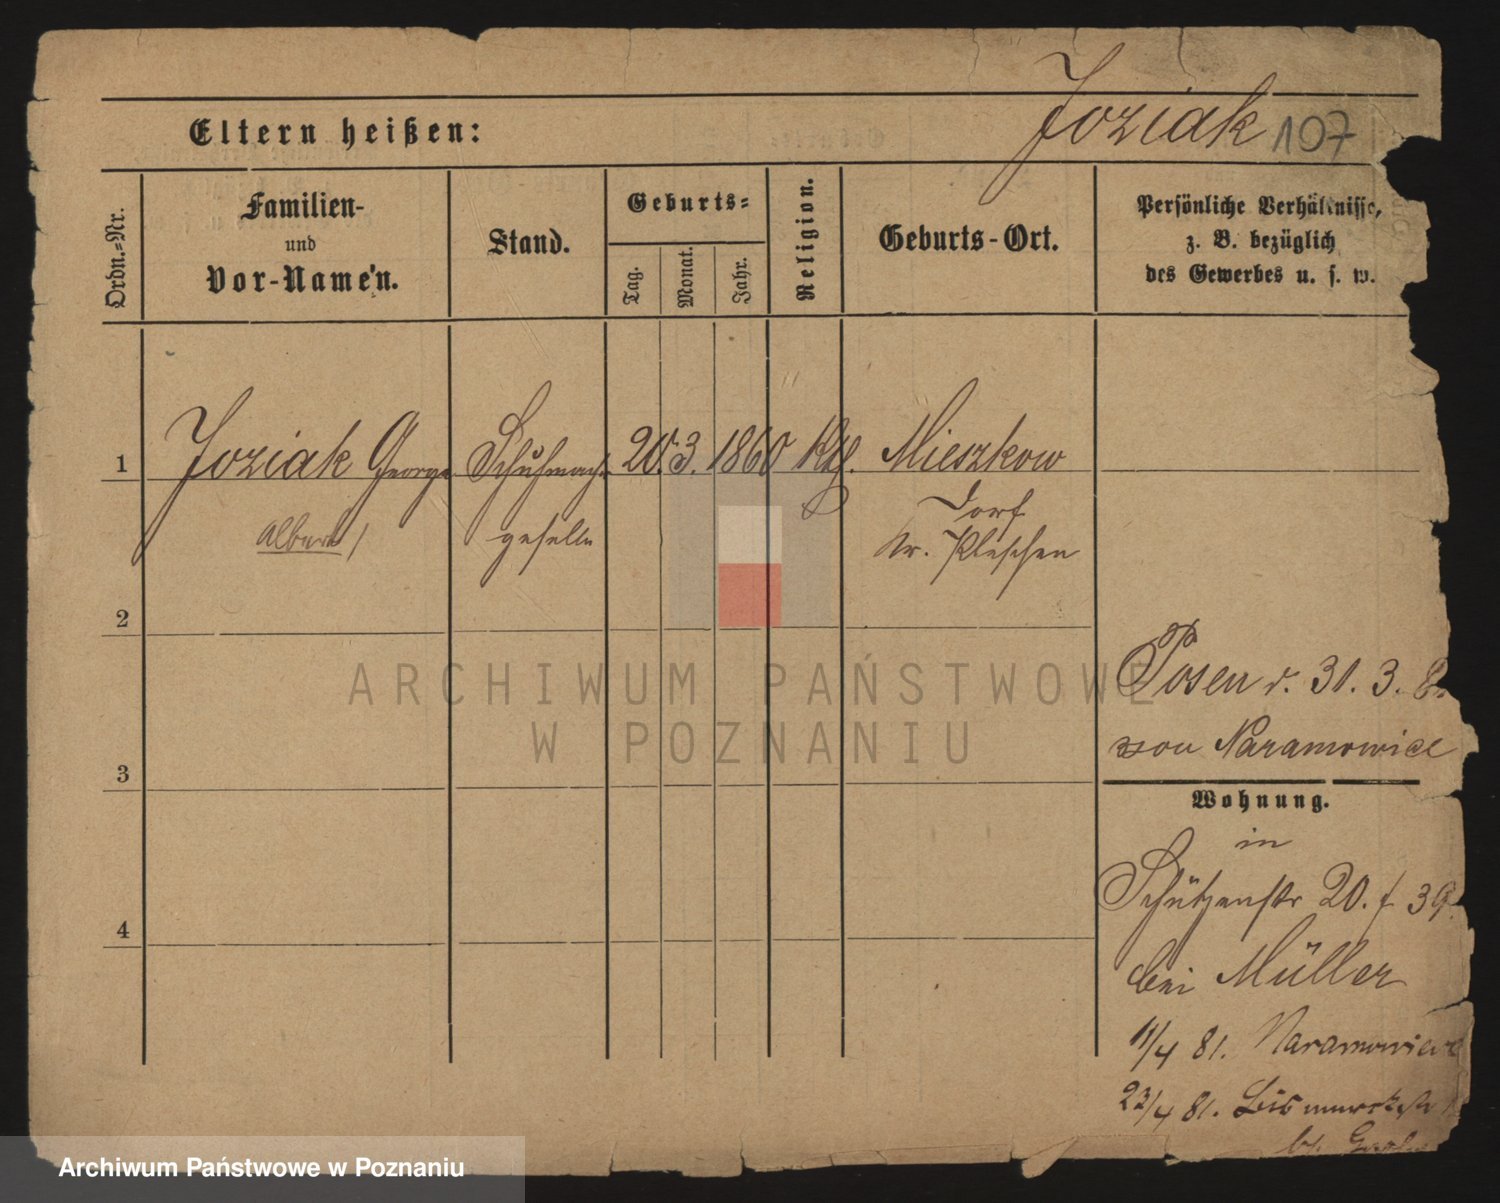 Joziak 107
Eltern heißen:
Ordn.=Nr.
Familien-
und
Vor-Namen.
Stand.
Geburts=
Tag.
Monat.
Jahr.
Religion.
Geburts-Ort.
Persönliche Verhältnisse,
z. B. bezüglich
des Gewerbes u. s. w.
1 Joziak George Schuhmach 20. 3. 1860 Kth. Mieszkow
Albert /
geselle
Dorf
Kr. Pleschen
2
Posen d. 31. 3.
von Naramowice
3
Wohnung.
in
Schützenstr 20. f 39.
bei Müller
4
11/4 81. Naramowice
23/4 81. Bismarckstr
bei
ARCHIWUM PAŃSTWOWE
W POZNANIU
Archiwum Państwowe w Poznaniu